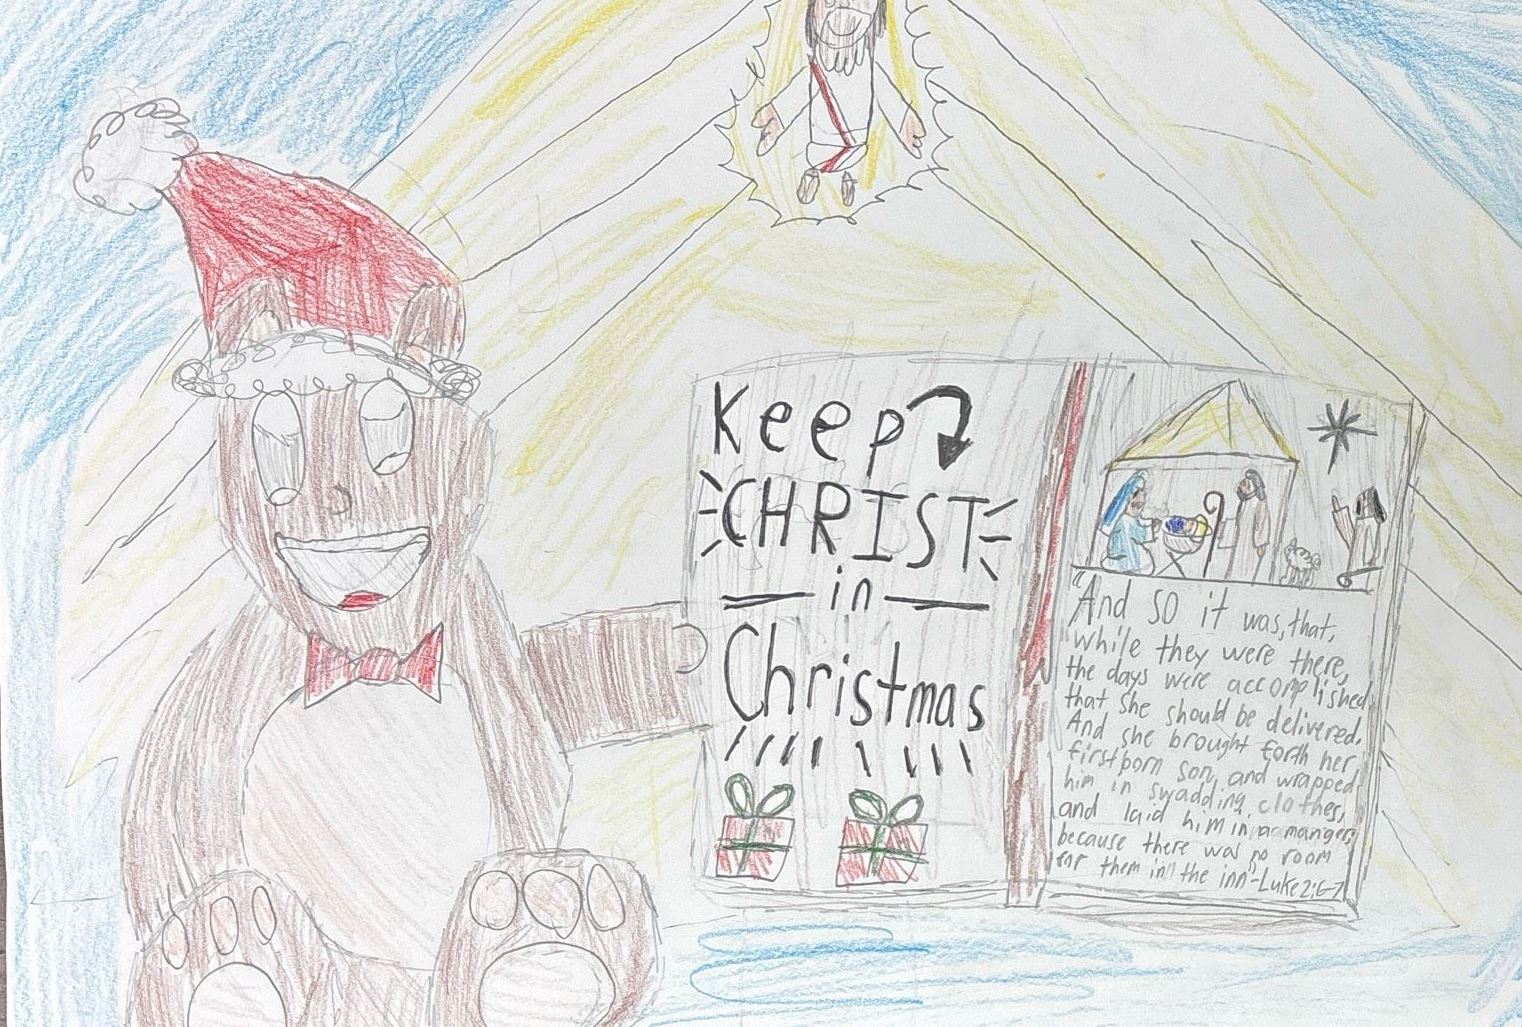 Keep
CHRIST
in
Christmas
"And so it was, that,
while they were there,
the days were accomplished
that she should be delivered.
And she brought forth her
firstborn son, and wrapped
him in swaddling clothes,
and laid him in a manger,
because there was no room
for them in the inn"-Luke 2:6-7